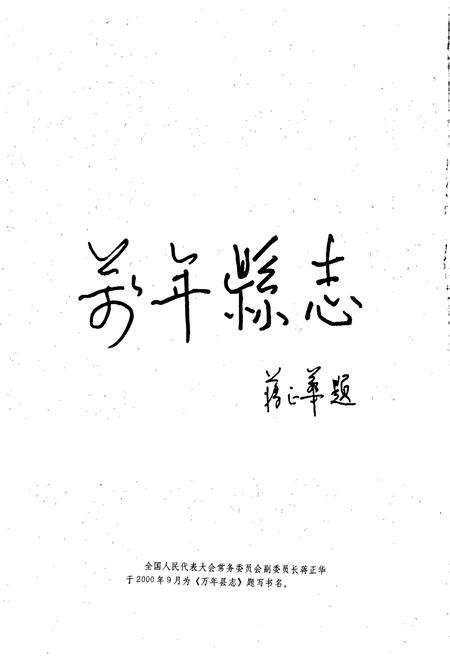 萬年縣志
蔣正華題
全国人民代表大会常务委员会副委员长蒋正华
于2000年9月为《万年县志》题写书名。